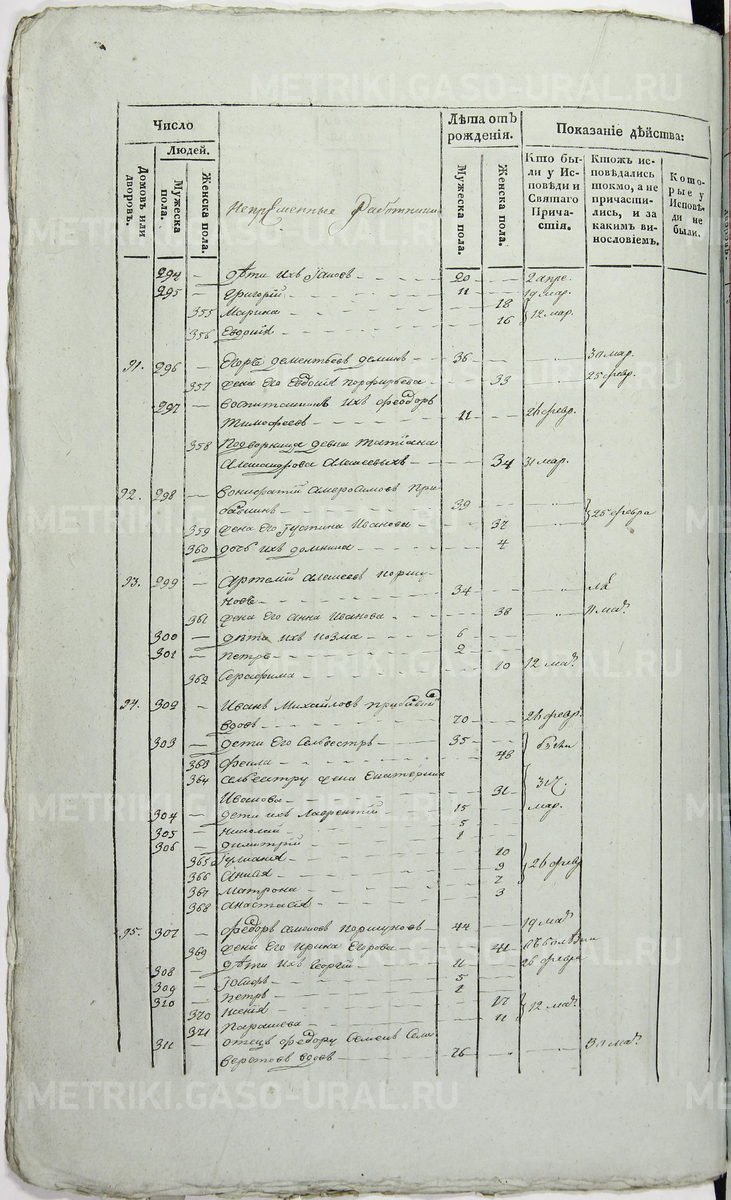 METRIKI.GASO-URAL.RU
Число
Лѣта отъ рожденія.
Показаніе дѣйства:
Людей.
Домовъ или дворовъ.
Мужеска пола.
Женска пола.
Непремѣнные Работники
Мужеска пола.
Женска пола.
Кто бы-
ли у Ис-
повѣди и
Святаго
Прича-
стія.
Ктожъ ис-
повѣдались
токмо, а не
причасти-
лись, и за
какимъ ви-
нословіемъ.
Кото-
рые у
Исповѣ-
ди не
были.
294 — дѣти ихъ 20 — 2 апре.
295 — Григорій 11 — 19 мар.
355 Марина 18 12 мар.
356 Евдокія 16
91. 296 — Егоръ Дементьевъ Деминъ 36 — 30 мар.
357 жена его Евдокія Порфирьева 33 25 февр.
297 — воспитанникъ ихъ Феодоръ
Тимофеевъ 11 — 26 февр.
358 Подворница девка Татіана
Александрова Алексеевыхъ 34 31 мар.
92. 298 — Вонифатій Амвросимовъ При-
39 25 февра
359 жена его Іустина Иванова 37
360 дочь ихъ Домника 4
93. 299 — Артемій Алексеевъ Коршу-
новъ 34
361 жена его Анна Иванова 38 11 мар
300 — дѣти ихъ Козма 6
301 — Петръ 2
362 Серафима 10 12 мар
94. 302 — Иванъ Михайловъ
вдовъ 70 26 февр.
303 — дети его Селвестръ 35
363 Фекла 48
364 Селвестру жена Екатерина
Иванова 31 мар.
304 — дети ихъ Лаврентій 15
305 — Николай 5
306 — Димитрій 1
365 Іулианія 10
366 Анисія 9 26 февр
367 Матрона 7
368 Анастасія 3
95. 307 — Феодоръ Семеновъ Коршуновъ 44 — 19 мар
369 жена его Ирина Егорова 41
308 — дѣти ихъ Георгій 11 26 февра
309 — 5
310 — Петръ 1
370 Ксенія 17 12 мар
371 Парасева 11
311 — отецъ Феодору Семенъ Сели-
верстовъ вдовъ 76 — 30 мар